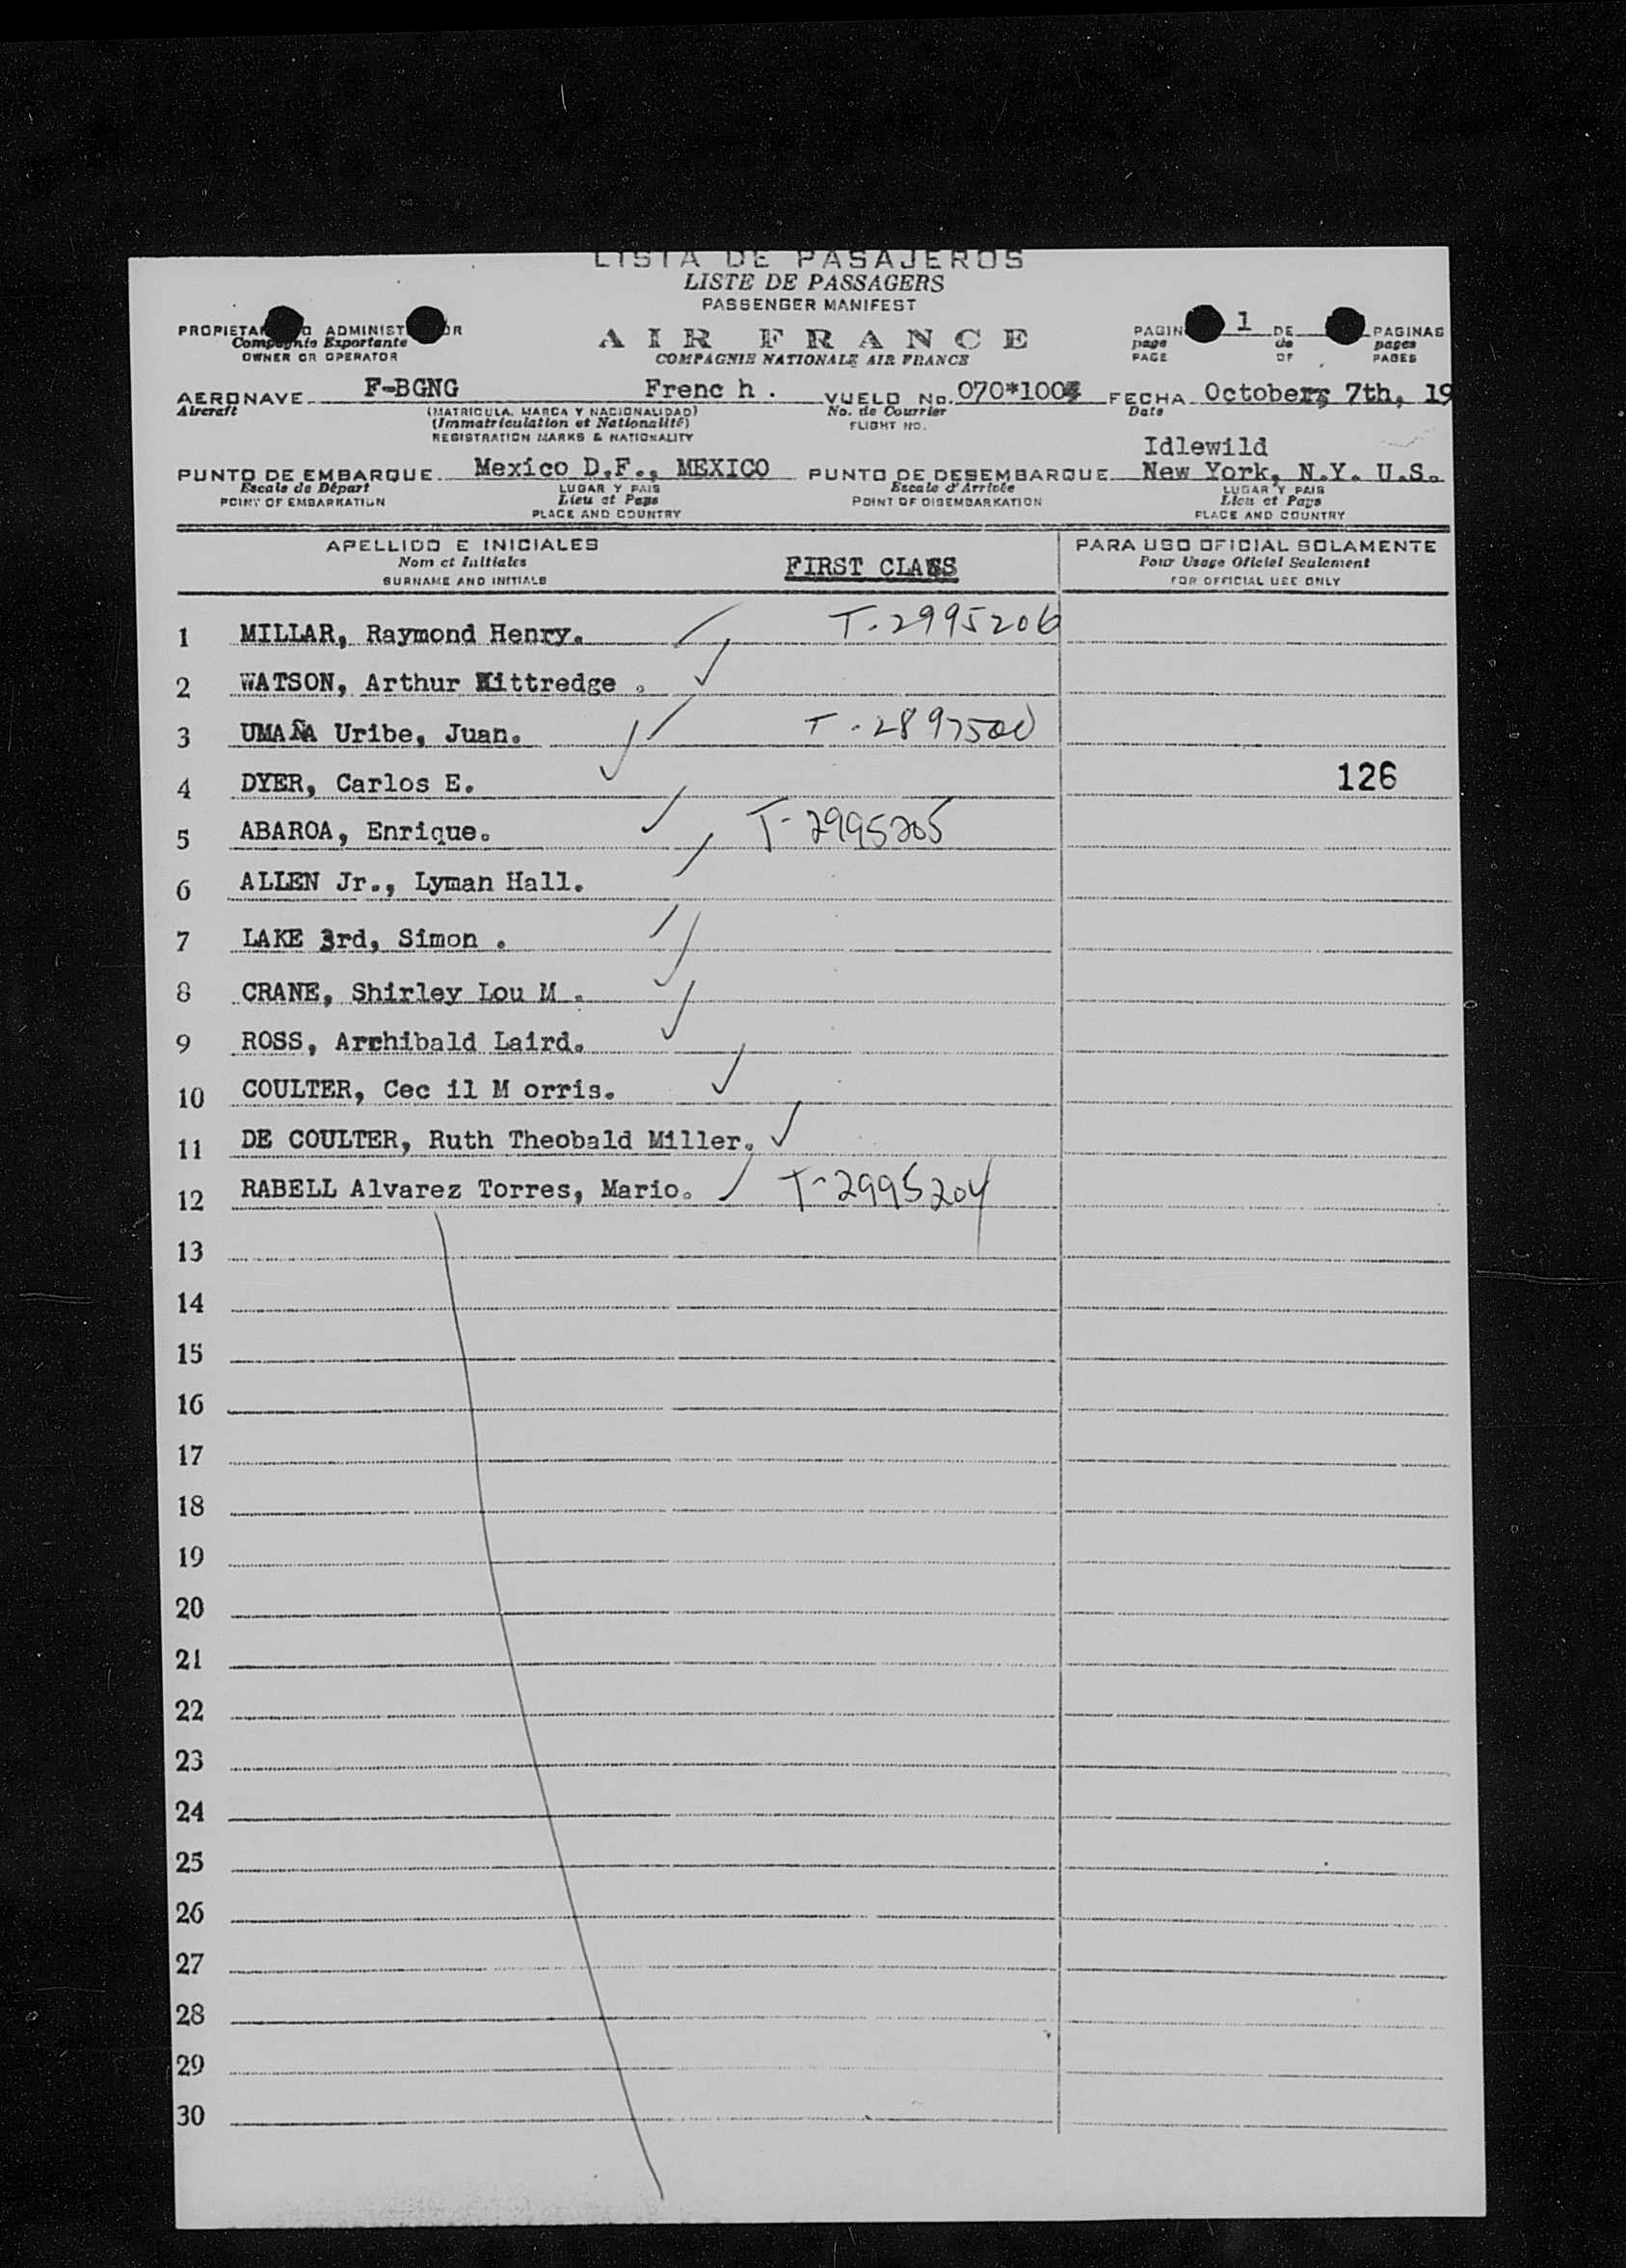 LISTA DE PASAJEROS
LISTE DE PASSAGERS
PASSENGER MANIFEST
AIR FRANCE
COMPAGNIE NATIONALE AIR FRANCE
PROPIETA O ADMINIST OR
Compagnie Exportante
OWNER OR OPERATOR
PAGIN 1 DE PAGINAS
page de pages
PAGE OF PAGES
AERONAVE F-BGNG Frenc h . VUELO No. 070*100 FECHA October, 7th, 19
Aircraft (MATRICULA, MARCA Y NACIONALIDAD) No. de Courrier Date
(Immatriculation et Nationalité) FLIGHT NO.
REGISTRATION MARKS & NATIONALITY
Idlewild
PUNTO DE EMBARQUE Mexico D.F., MEXICO PUNTO DE DESEMBARQUE New York, N.Y. U.S.
Escale de Départ LUGAR Y PAIS Escale d'Arrivée LUGAR Y PAIS
POINT OF EMBARKATION Lieu et Pays POINT OF DISEMBARKATION Lieu et Pays
PLACE AND COUNTRY PLACE AND COUNTRY
APELLIDO E INICIALES PARA USO OFICIAL SOLAMENTE
Nom et Initiales FIRST CLASS Pour Usage Oficiel Seulement
SURNAME AND INITIALS FOR OFFICIAL USE ONLY
1 MILLAR, Raymond Henry. T-2995206
2 WATSON, Arthur Kittredge .
3 UMAÑA Uribe, Juan. T-2897500
4 DYER, Carlos E. 126
5 ABAROA, Enrique. T-2995205
6 ALLEN Jr., Lyman Hall.
7 LAKE 3rd, Simon .
8 CRANE, Shirley Lou M .
9 ROSS, Archibald Laird.
10 COULTER, Cec il M orris.
11 DE COULTER, Ruth Theobald Miller.
12 RABELL Alvarez Torres, Mario. T-2995204
13
14
15
16
17
18
19
20
21
22
23
24
25
26
27
28
29
30